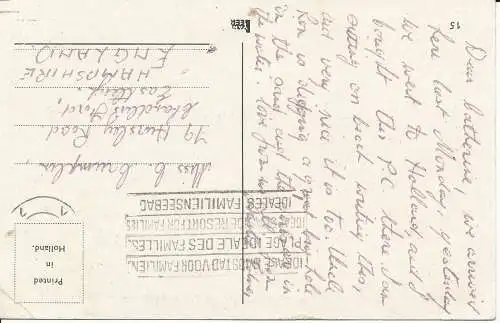 15
Dear Catherine, we arrived
here last Monday, yesterday
we went to Holland and I
bought this P.C. there I am
sitting on beach writing this,
and very nice it is too. Uncle
Ron is digging a great big hole
in the sand and the
water. Love from
Miss C. Crumplin,
79 Hursley Road
Chandlers Ford,
Eastleigh.
HAMPSHIRE
ENGLAND
BADSTAD VOOR FAMILIEN
PLAGE IDEALE DES FAMILLES
IDEAL RESORT FOR FAMILIES
IDEALES FAMILIENSEEBAD
Printed
in
Holland.